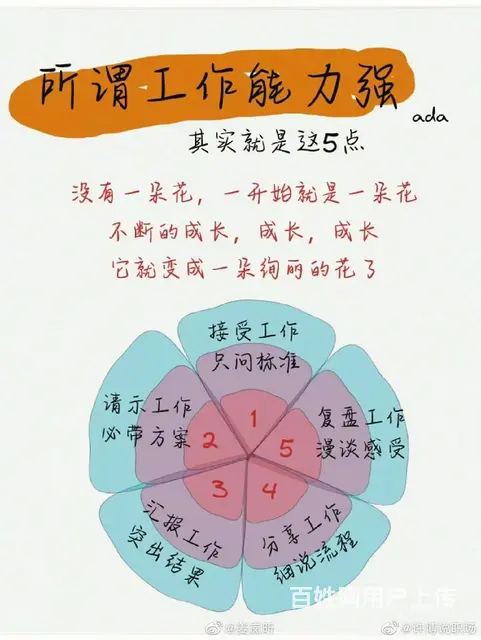 所谓工作能力强
ada
其实就是这5点
没有一朵花，一开始就是一朵花
不断的成长，成长，成长
它就变成一朵绚丽的花了
接受工作
只问标准
1
请示工作
必带方案
2
汇报工作
突出结果
3
分享工作
细说流程
4
复盘工作
漫谈感受
5
百姓网用户上传